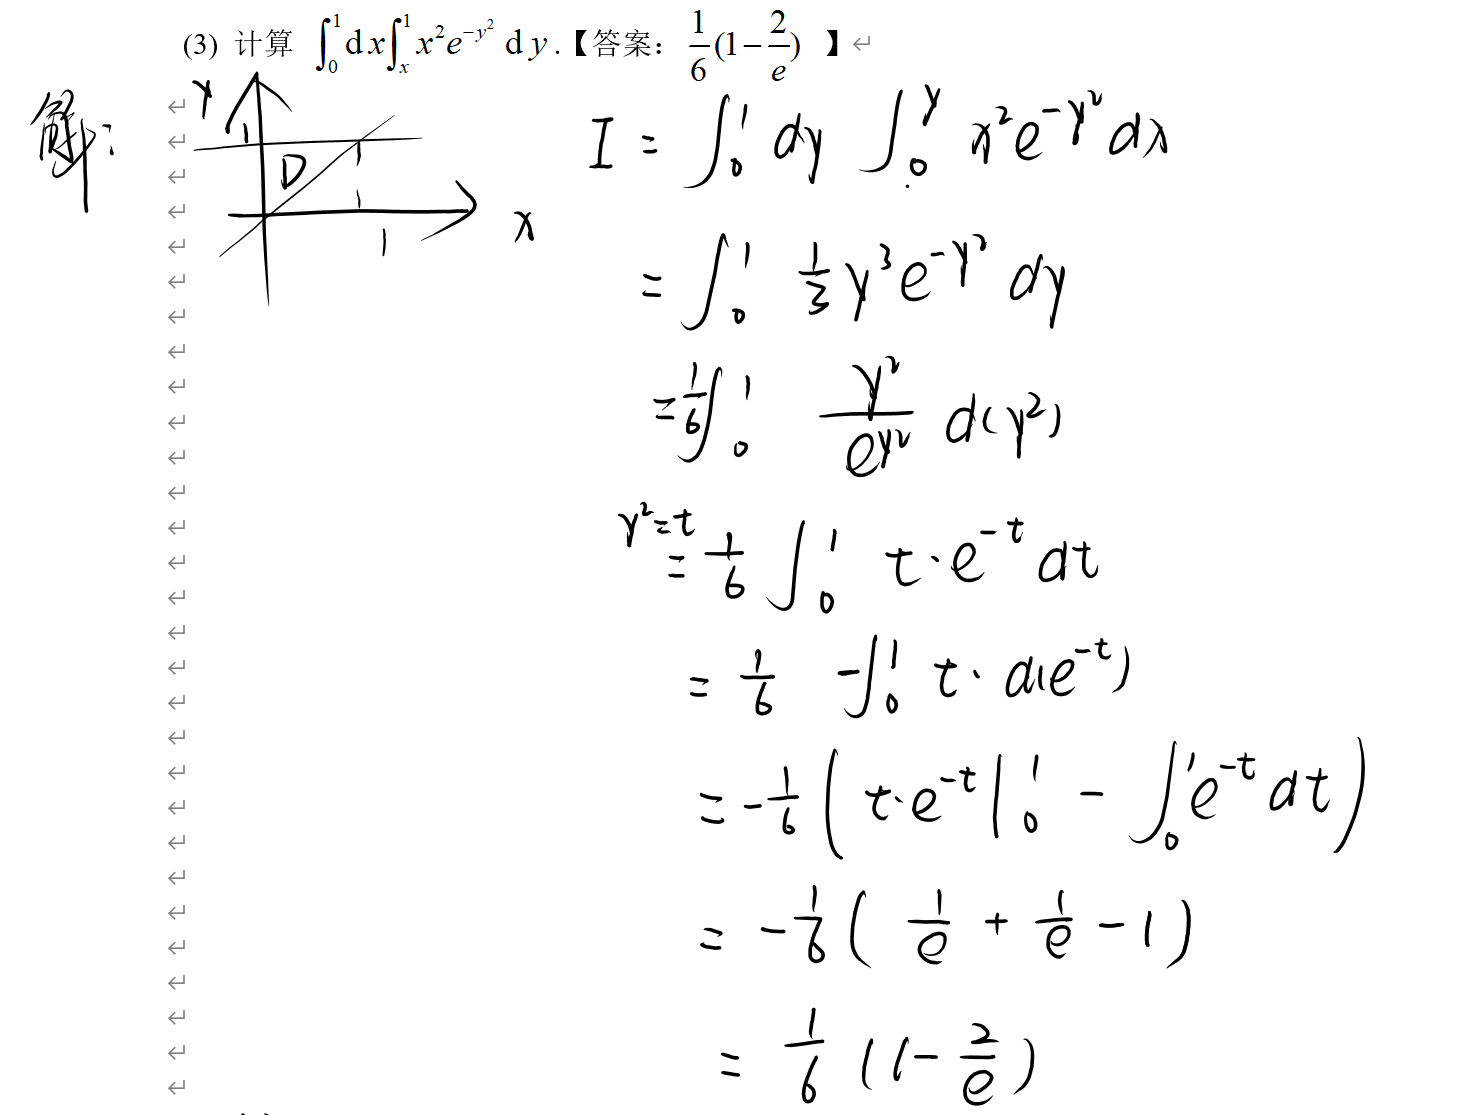 (3) 计算 ∫₀¹dx∫ₓ¹x²e^{-y²} dy.【答案：1/6(1-2/e) 】
解：
y
1
D
1
x
I = ∫₀¹ dy ∫₀^y x²e^{-y²}dx
= ∫₀¹ 1/3 y³e^{-y²} dy
= 1/6 ∫₀¹ y²/e^{y²} d(y²)
y²=t
= 1/6 ∫₀¹ t·e^{-t} dt
= 1/6 -∫₀¹ t· d(e^{-t})
= -1/6 ( t·e^{-t}|₀¹ - ∫₀¹e^{-t} dt )
= -1/6 ( 1/e + 1/e - 1 )
= 1/6 (1- 2/e)